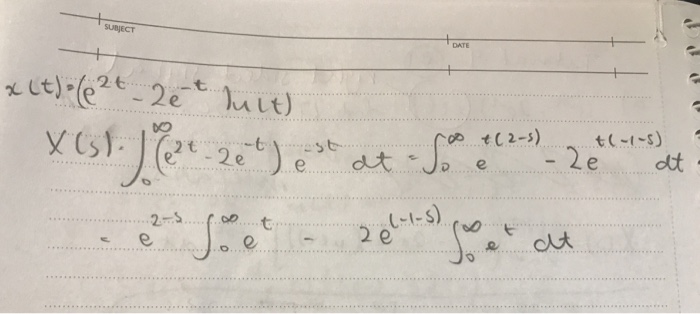 SUBJECT
DATE
x(t) = (e^{2t} - 2e^{-t})u(t)
X(s) = ∫_0^∞ (e^{2t} - 2e^{-t}) e^{-st} dt = ∫_0^∞ e^{t(2-s)} - 2e^{t(-1-s)} dt
= e^{2-s} ∫_0^∞ e^t - 2e^{(-1-s)} ∫_0^∞ e^t dt